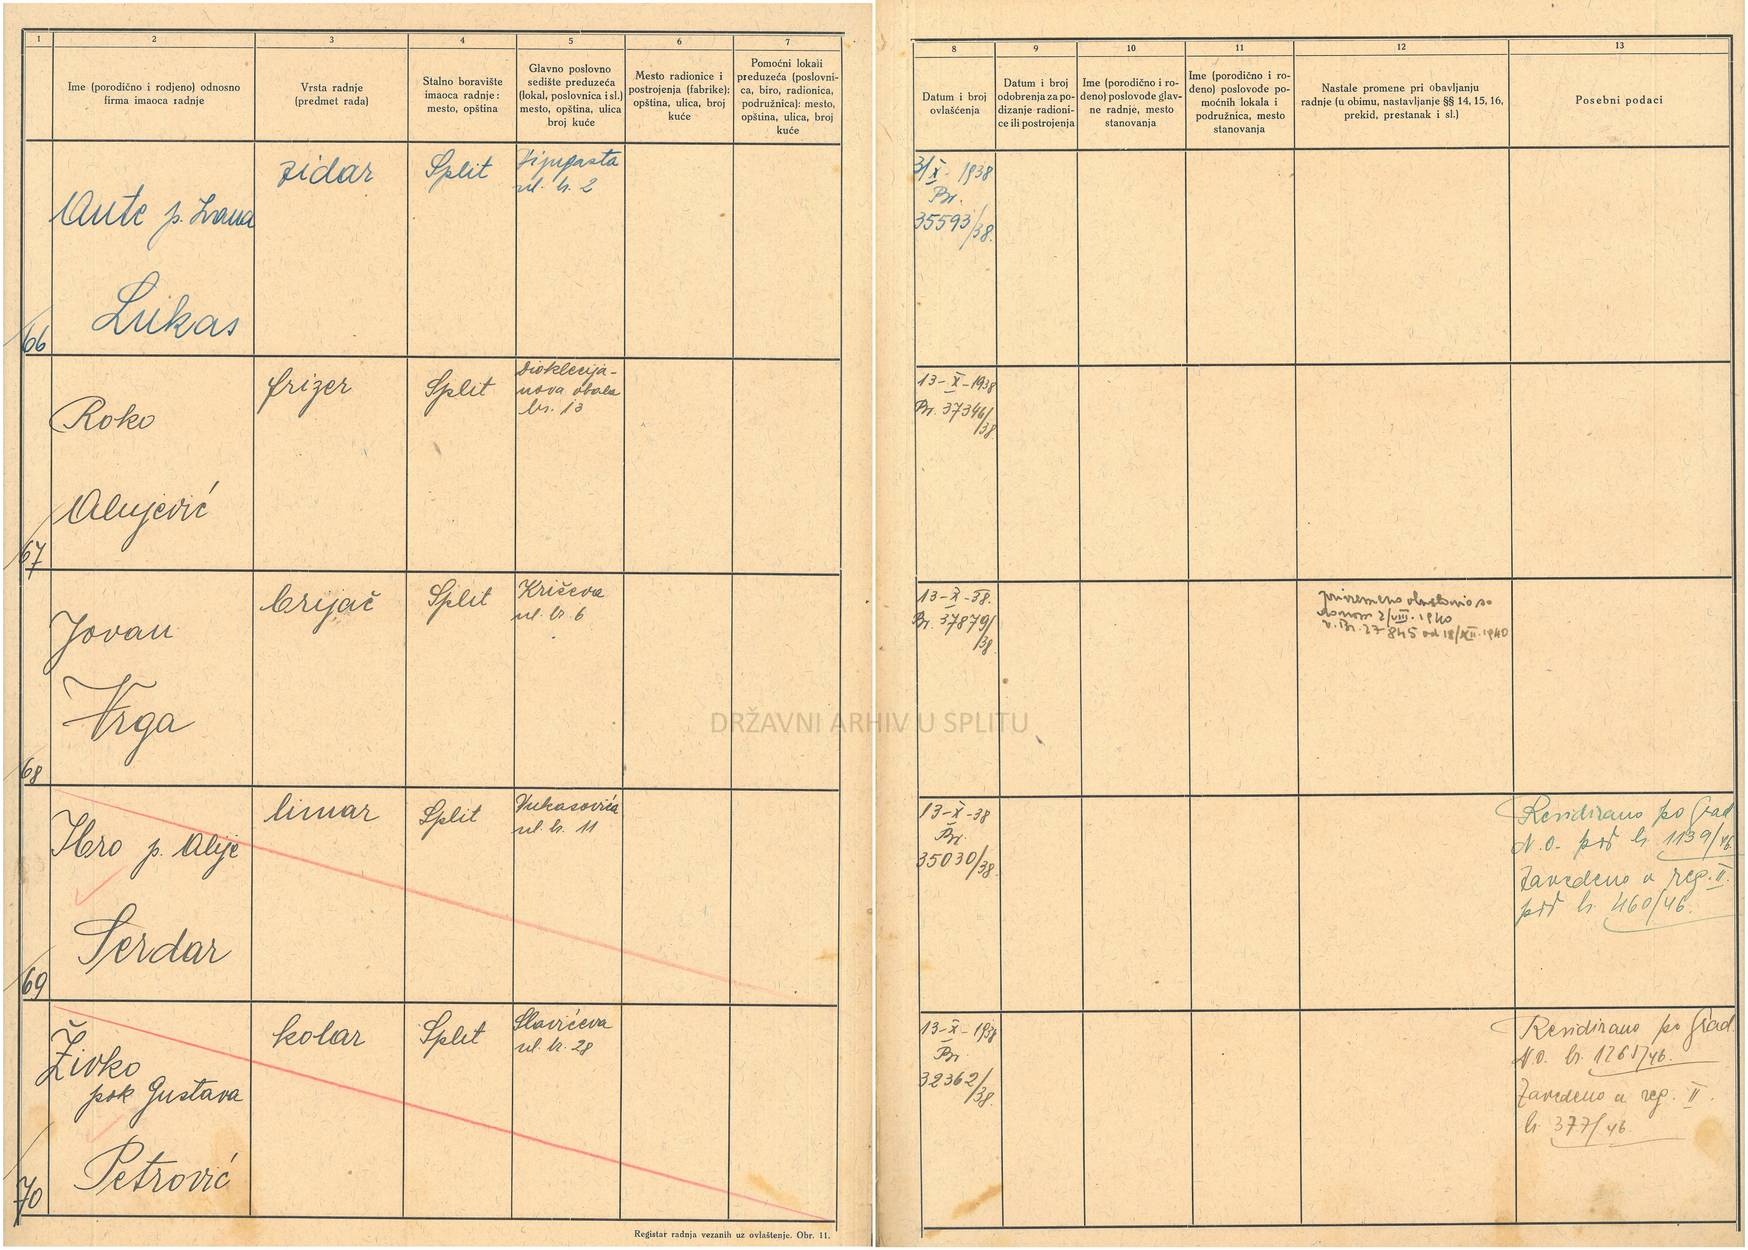 1 2 3 4 5 6 7
Ime (porodično i rodjeno) odnosno
firma imaoca radnje
Vrsta radnje
(predmet rada)
Stalno boravište
imaoca radnje:
mesto, opština
Glavno poslovno
sedište preduzeća
(lokal, poslovnica i sl.)
mesto, opština, ulica
broj kuće
Mesto radionice i
postrojenja (fabrike):
opština, ulica, broj
kuće
Pomoćni lokali
preduzeća (poslovni-
ca, biro, radionica,
podružnica): mesto,
opština, ulica, broj
kuće
8 9 10 11 12 13
Datum i broj
ovlašćenja
Datum i broj
odobrenja za po-
dizanje radioni-
ce ili postrojenja
Ime (porodično i ro-
đeno) poslovođe glav-
ne radnje, mesto
stanovanja
Ime (porodično i ro-
đeno) poslovođe po-
moćnih lokala i
podružnica, mesto
stanovanja
Nastale promene pri obavljanju
radnje (u obimu, nastavljanje §§ 14, 15, 16,
prekid, prestanak i sl.)
Posebni podaci
66
Ante p. Ivana
Lukas
zidar
Split
ul. br. 2
31/X - 1938
Br.
35593/38.
67
Roko
Alujević
frizer
Split
Dioklecija-
nova obala
br. 13
13-X-1938
Br. 37346/
/38
68
Jovan
Vrga
brijač
Split
Križeva
ul. br. 6
13-X-38.
Br. 37879/
/38
privremeno obustavio sa
danom 2/VIII. 1940
v. Br. 27845 od 18/XII. 1940
69
Ibro p. Alije
Serdar
limar
Split
Vukasovića
ul. br. 11
13-X-38
Br.
35030/38.
Residirano po Grad
N.O. pod br. 1139/46.
Zavedeno u reg. II.
pod br. 460/46.
70
Živko
pok Gustava
Petrović
kolar
Split
Slavićeva
ul. br. 28
13-X-1938
Br.
32362/38.
Residirano po Grad.
N.O. br. /46.
Zavedeno u reg. II.
br 377/46
DRŽAVNI ARHIV U SPLITU
Registar radnja vezanih uz ovlaštenje. Obr. 11.